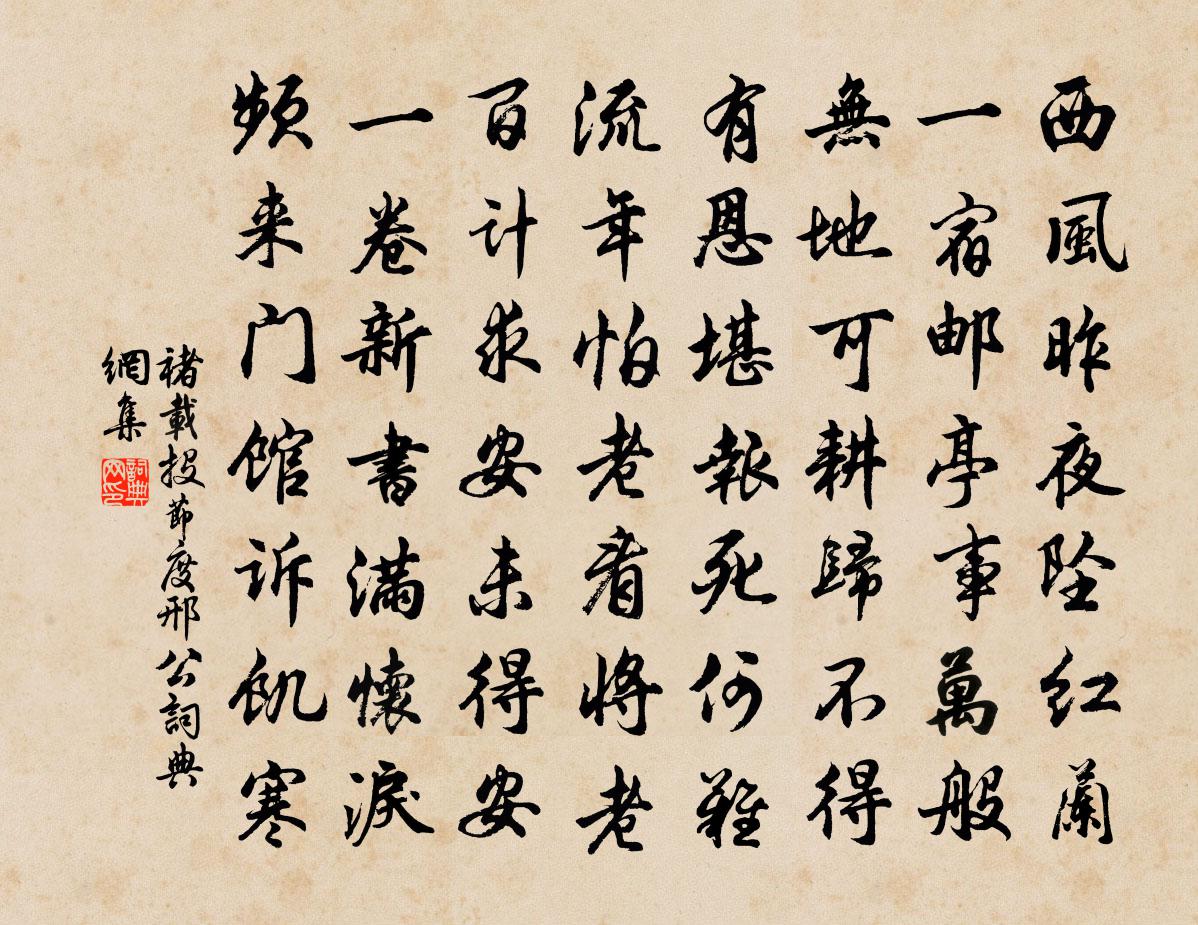 西風昨夜坠红蘭
一宿邮亭事萬般
無地可耕歸不得
有恩堪報死何難
流年怕老看将老
百计求安未得安
一卷新書滿懷淚
频来门馆诉飢寒
褚載投節度邢公詞典
網集
詞典网印